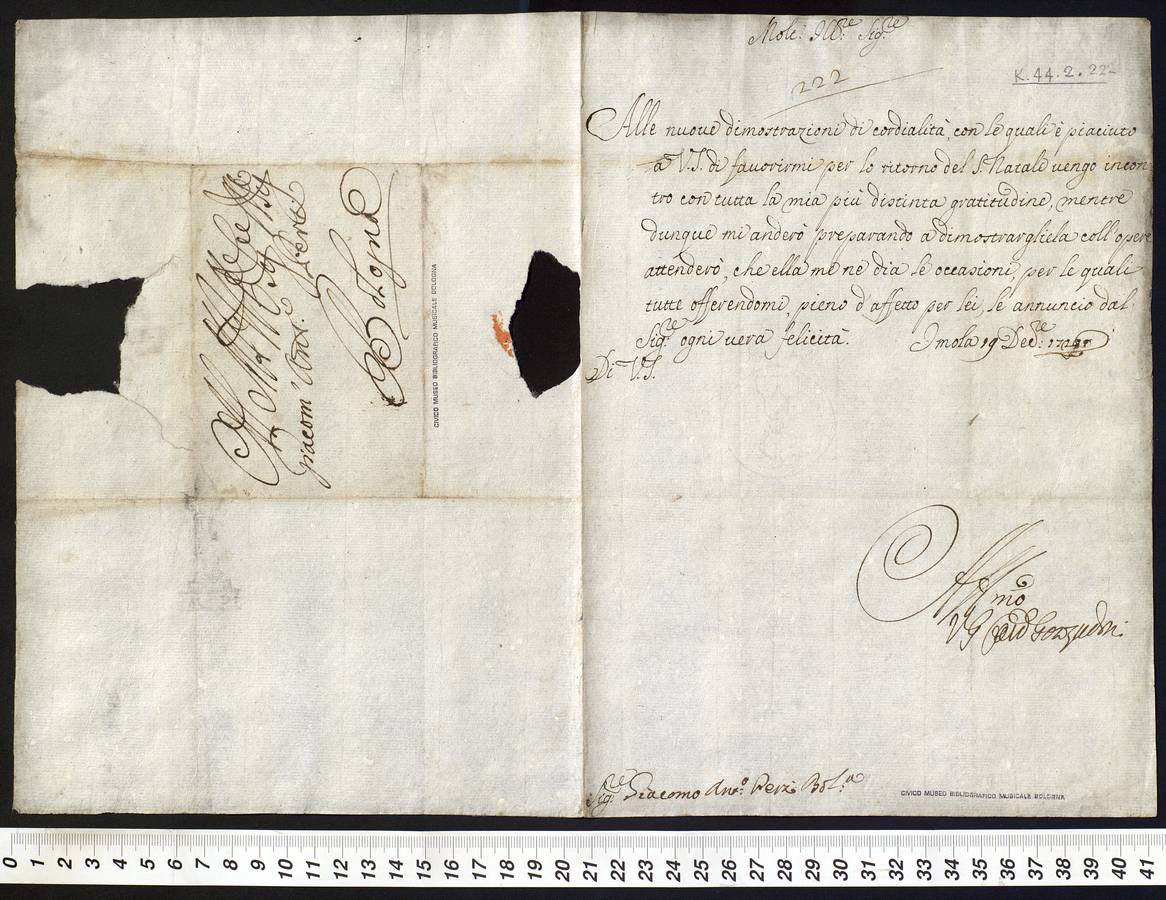 Molt: Ill:re Sig:re
222
K.44.2.222
Alle nuove dimostrazioni di cordialità, con le quali è piaciuto
a V.S. di favorirmi per lo ritorno del S. Natale vengo incon
tro con tutta la mia più distinta gratitudine, mentre
dunque mi anderò preparando a dimostrargliela coll'opere
attenderò, che ella me ne dia le occasioni, per le quali
tutte offerendomi, pieno d'affetto per lei, le annuncio dal
Sig:re ogni vera felicità. Imola 19 Dec:re
Di V.S.
Aff:mo
Card Gozzadini
Sig:re Giacomo Ant:o Perti Bol:a
CIVICO MUSEO BIBLIOGRAFICO MUSICALE BOLOGNA
Giacom Ant: Perti
Bologna
CIVICO MUSEO BIBLIOGRAFICO MUSICALE BOLOGNA
0 1 2 3 4 5 6 7 8 9 10 11 12 13 14 15 16 17 18 19 20 21 22 23 24 25 26 27 28 29 30 31 32 33 34 35 36 37 38 39 40 41